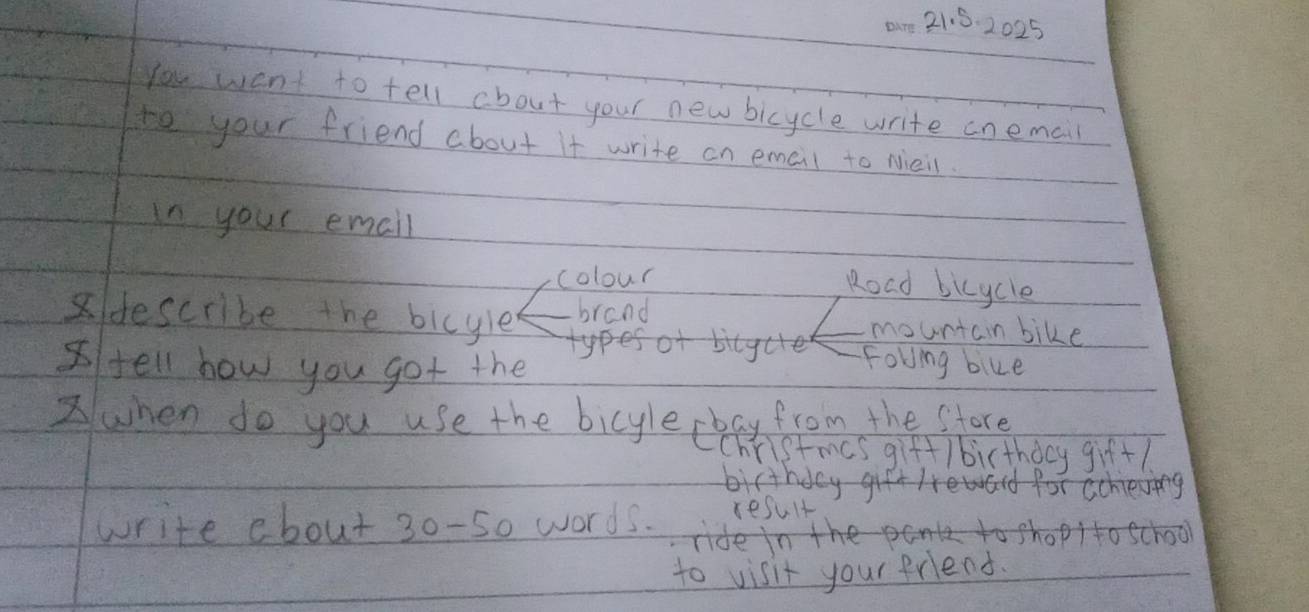 DATE 21.5.2025
You want to tell about your new bicycle write an email
to your friend about it write an email to Nieil.
in your email
describe the bicyle colour
brand
types of bicycle Road bicycle
mountain bike
Folling bike
tell how you got the
when do you use the bicyle bay from the store
Christmas gift/birthday gift/
birthday gift/reward for achieving
result
write about 30-50 words.
ride in the park to shop/to school
to visit your friend.